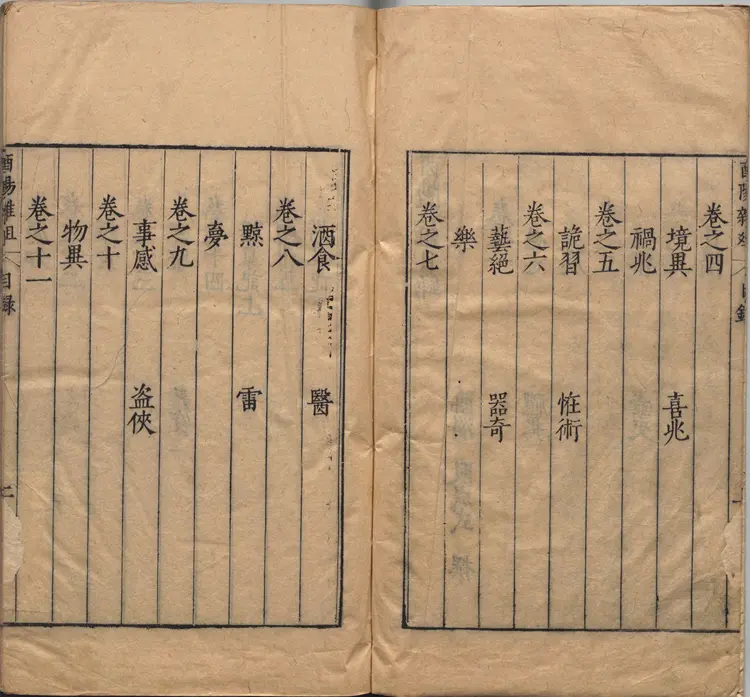 卷之四
境異 喜兆
禍兆
卷之五
詭習 怪術
卷之六
藝絕 器奇
樂
卷之七
酒食 醫
卷之八
黥 雷
夢
卷之九
事感 盗俠
卷之十
物異
卷之十一
酉陽雜俎 目録 二